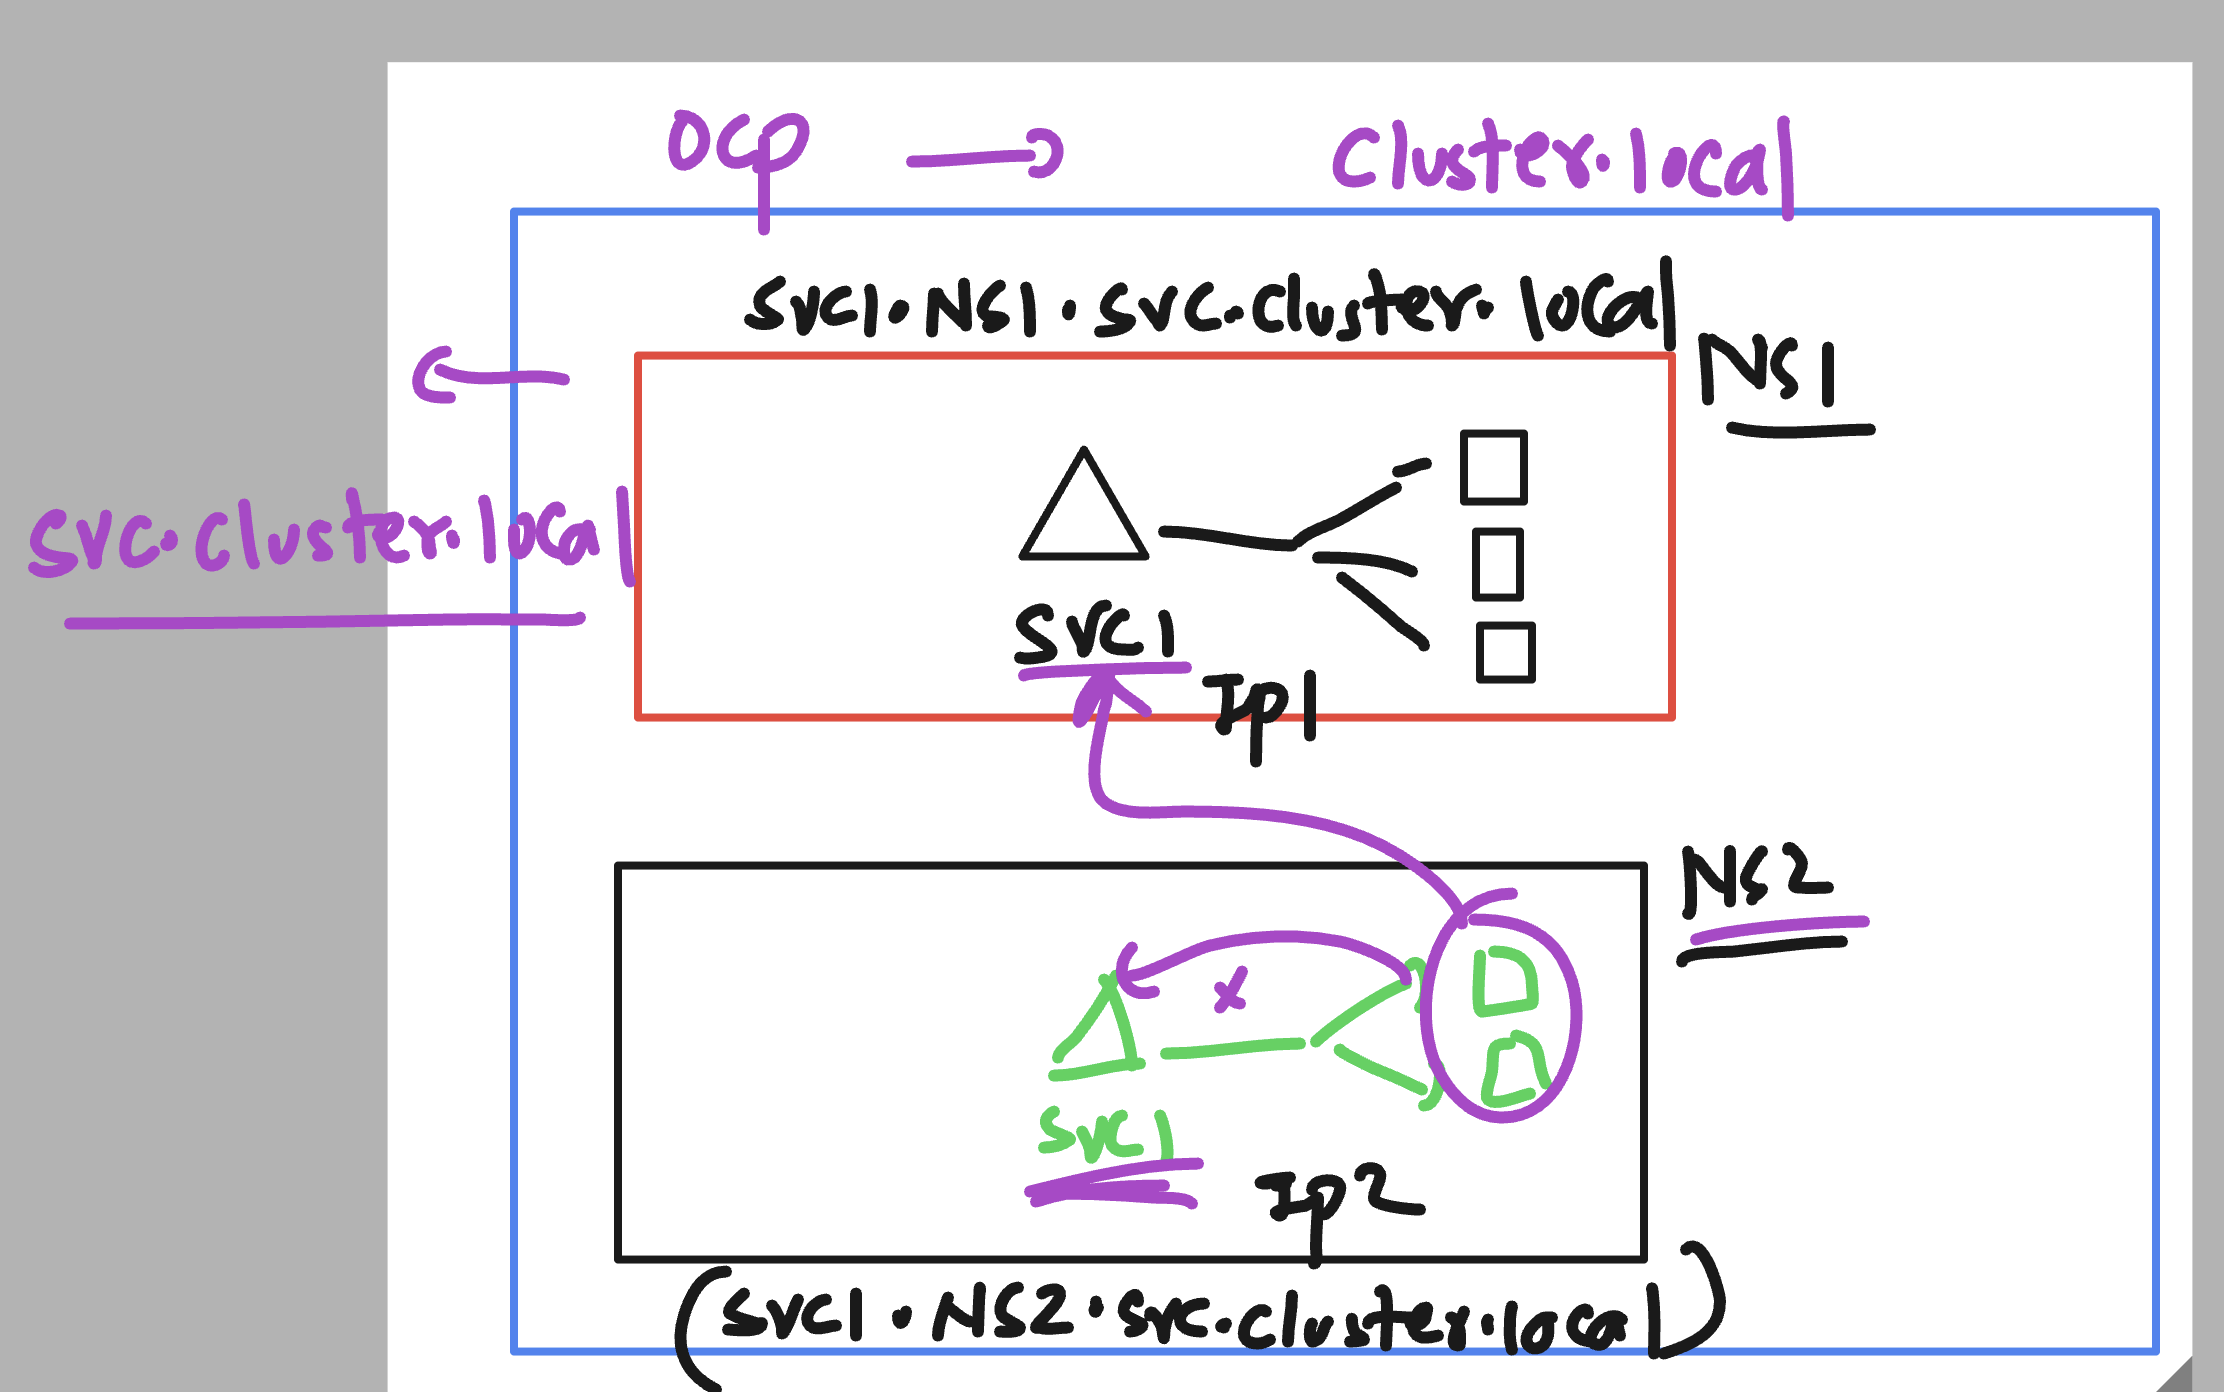 OCP → Cluster.local
SVC1.NS1.SVC.Cluster.local
NS1
SVC.Cluster.local
SVC1
Ip1
NS2
x
SVC1
Ip2
(SVC1.NS2.SVC.Cluster.local)